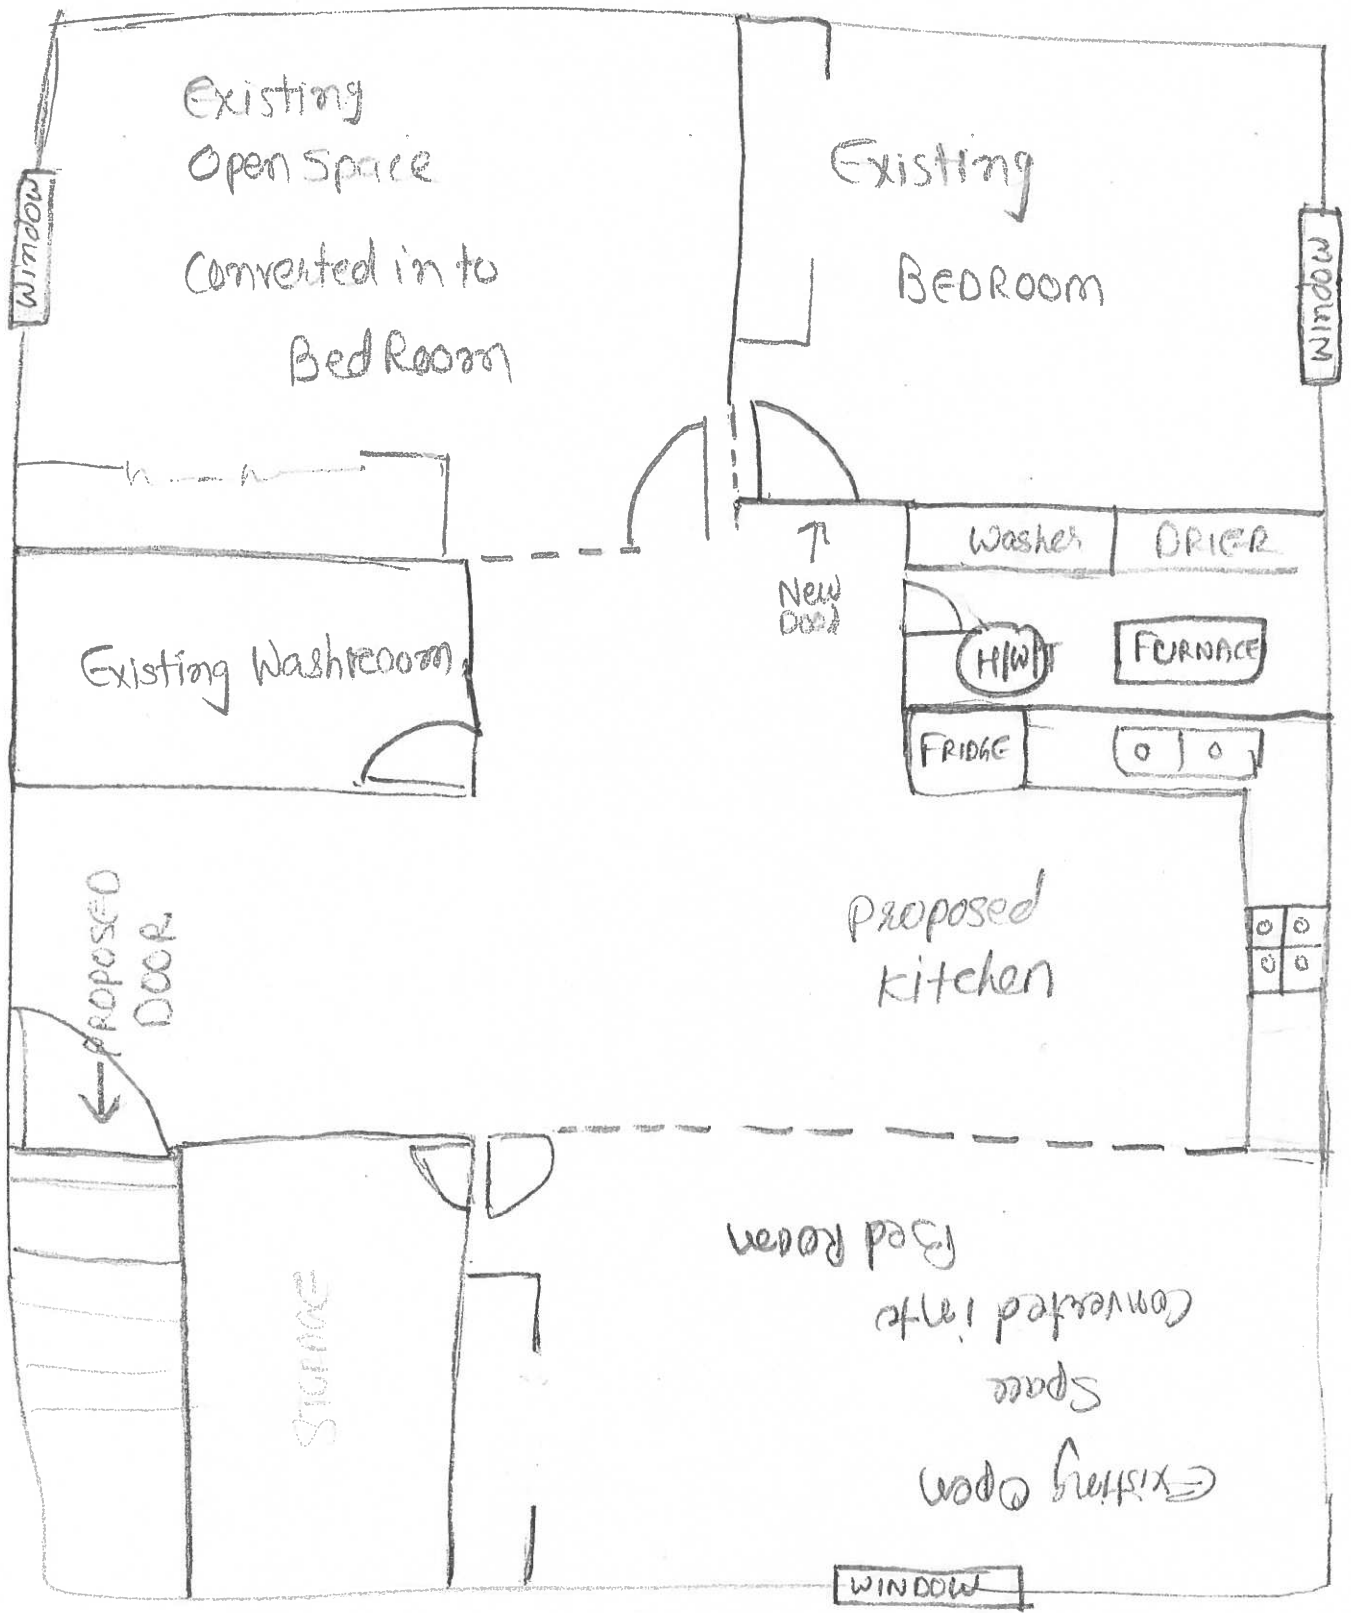 Existing
Open Space
Converted in to
BedRoom
WINDOW
Existing
BEDROOM
WINDOW
Washer
DRIER
New
Door
H/W/T
FURNACE
Existing Washroom
FRIDGE
PROPOSED
DOOR
Proposed
Kitchen
STORAGE
Existing Open
Space
Converted into
Bed Room
WINDOW